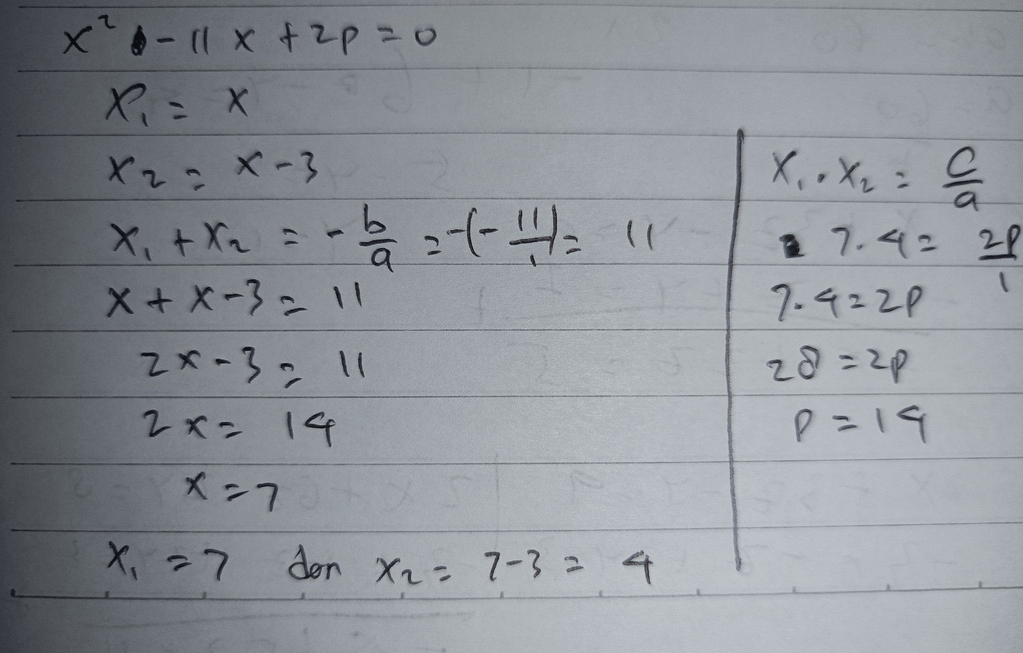 x² - 11x + 2p = 0
x₁ = x
x₂ = x - 3
x₁ + x₂ = - b/a = -(- 11/1) = 11
x + x - 3 = 11
2x - 3 = 11
2x = 14
x = 7
x₁ = 7 dan x₂ = 7 - 3 = 4
x₁ . x₂ = c/a
7 . 4 = 2p/1
7 . 4 = 2p
28 = 2p
p = 14